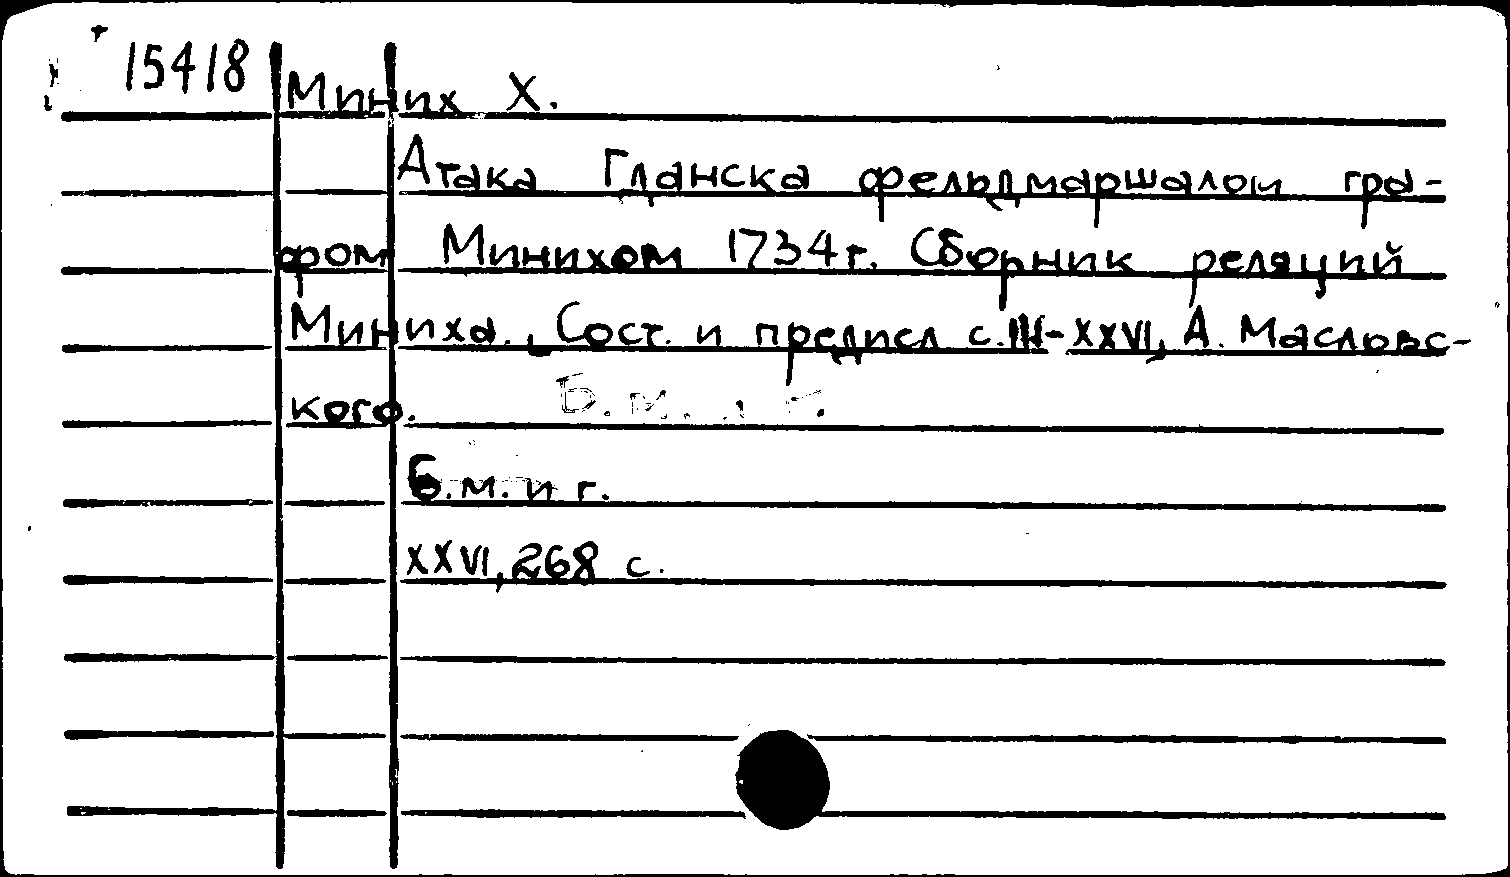 15418
Миних Х.
Атака Гданска фельдмаршалом гра-
фом Минихом 1734 г. Сборник реляций
Миниха., Сост. и предисл с.III-XXVI, А. Масловс-
кого. Б.м. и г.
Б.м. и г.
XXVI, 268 с.